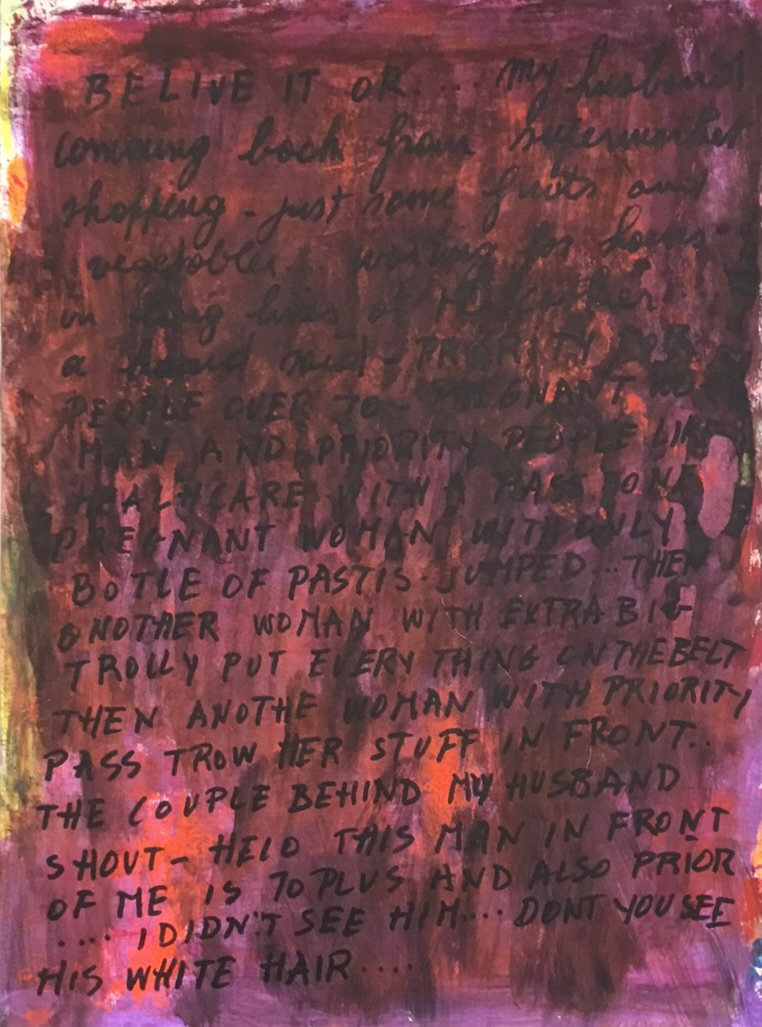 BELIVE IT OR.... my husband
comming back from supermarket
shopping - just some fruits and
vegetables... waiting for hours
in long lines at the
a said - PRIORITY FOR
PEOPLE OVER 70 - PREGNANT WO
MAN AND PRIORITY PEOPLE LIKE
HEALHCARE WITH A PASS. ONE
PREGNANT WOMAN WITH ONLY
BOTLE OF PASTIS. JUMPED.. THEN
ANOTHER WOMAN WITH EXTRA BIG
TROLLY PUT EVERY THING ON THE BELT
THEN ANOTHE WOMAN WITH PRIORITY
PASS TROW HER STUFF IN FRONT..
THE COUPLE BEHIND MY HUSBAND
SHOUT - HELO THIS MAN IN FRONT
OF ME IS 70 PLUS AND ALSO PRIOR
.... I DIDN'T SEE HIM.... DONT YOU SEE
HIS WHITE HAIR....